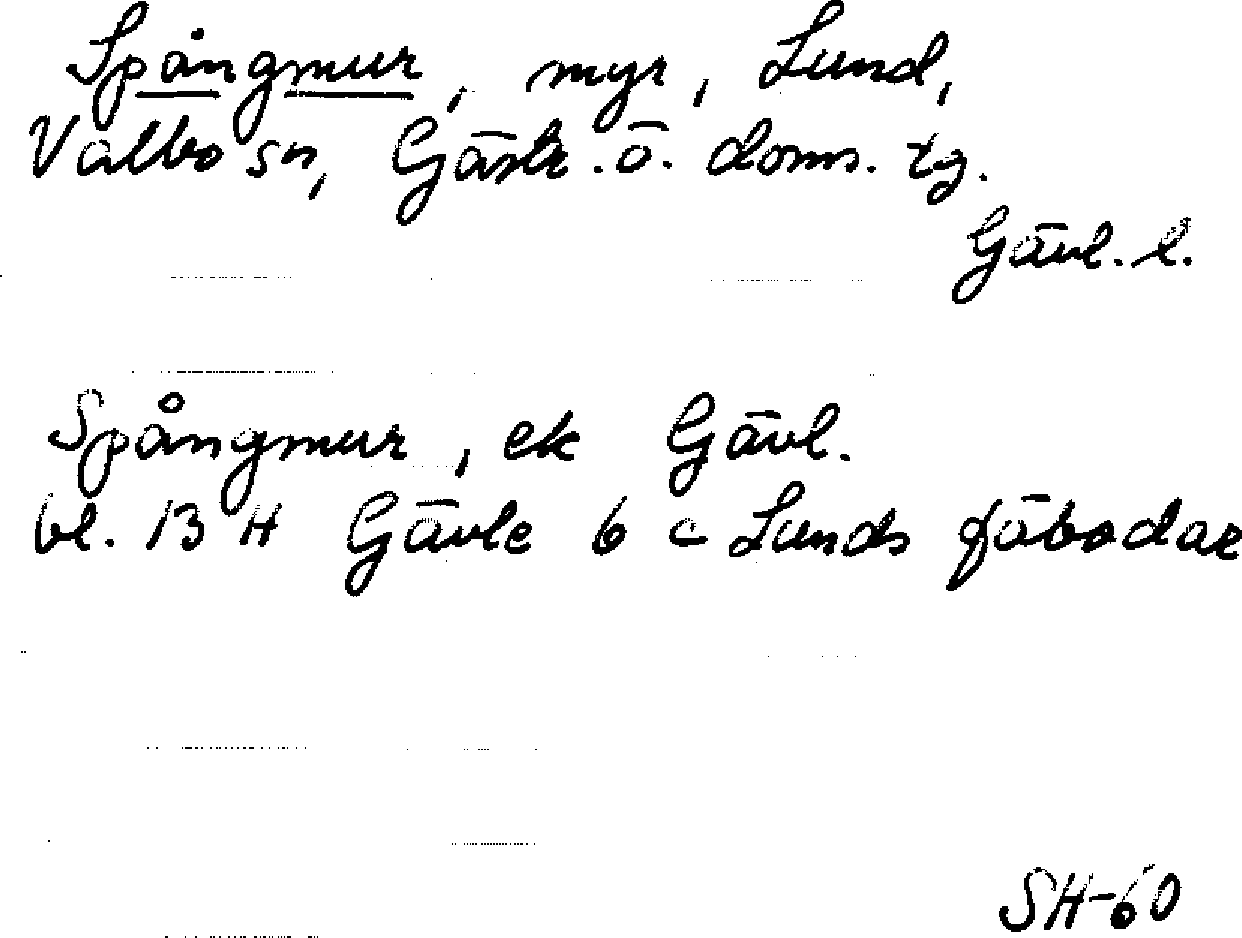 Spångmur, myr, Lund,
Valbo sn, Gästr. ö. doms. tg.
Gävl. l.
Spångmur, ek Gävl.
bl. 13 H Gävle 6 c Lunds fäbodar
SH-60